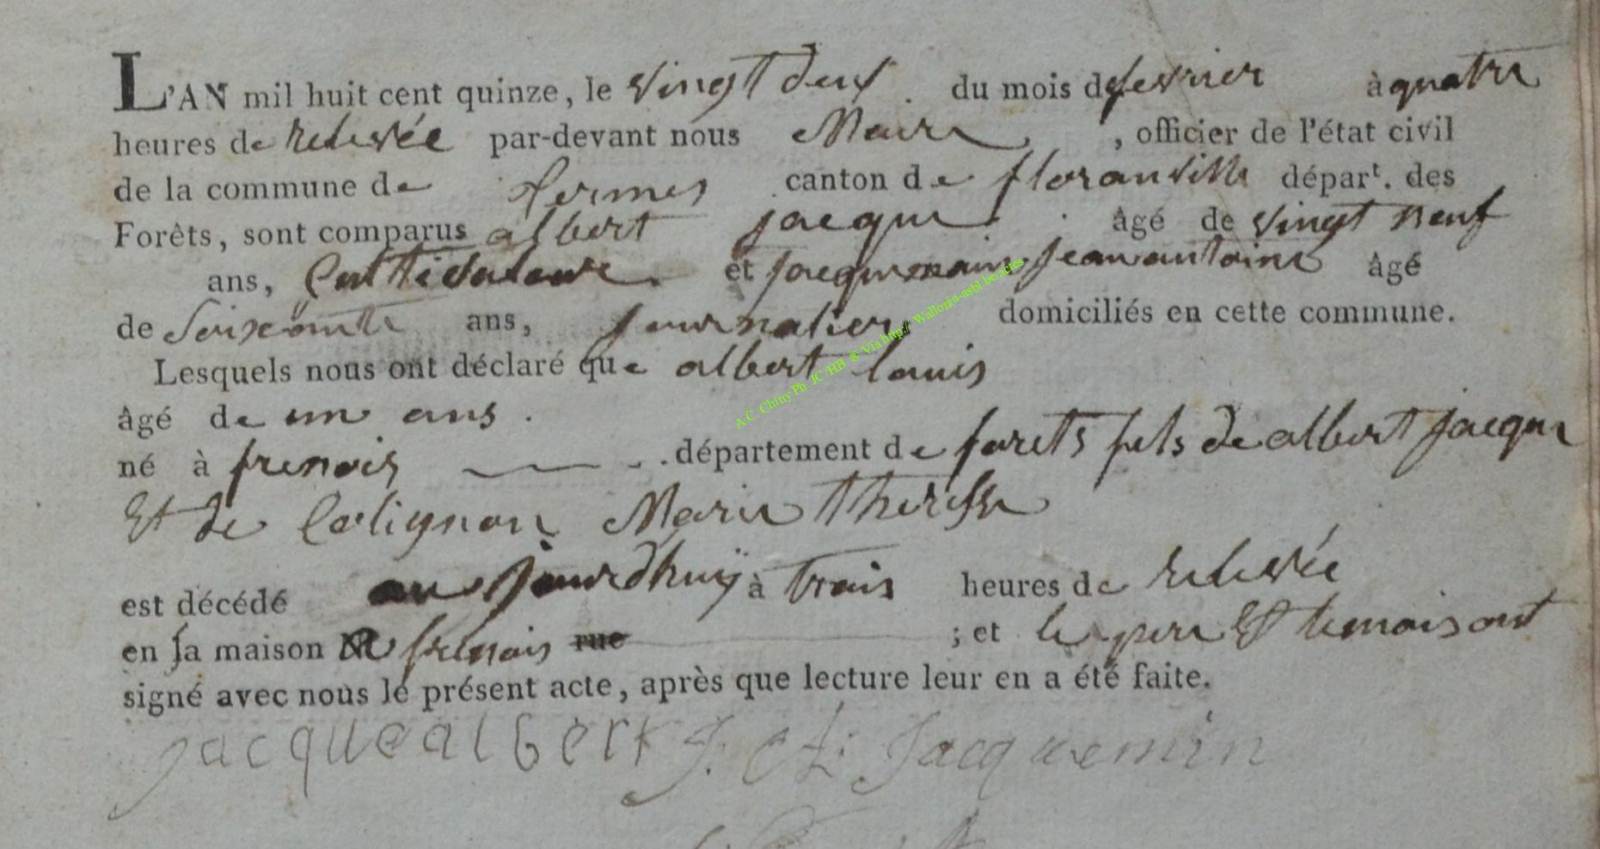 L'AN mil huit cent quinze, le vingt deux du mois de fevrier à quatre
heures de relevée par-devant nous Maire, officier de l'état civil
de la commune de termes canton de floranville départ. des
Forêts, sont comparus albert jacque âgé de vingt neuf
ans, Cultivateur et jacquemain jean antoine âgé
de Soixante ans, journalier domiciliés en cette commune.
Lesquels nous ont déclaré que albert louis
âgé de un ans.
né à frenois département de forets fils de albert jacque
Et de Colignon Marie theresse
est décédé aujourdhuÿ à trois heures de relevée
en sa maison A frenois rue ; et le pere Et temois ont
signé avec nous le présent acte, après que lecture leur en a été faite.
jacque albert J. A: Jacquemin